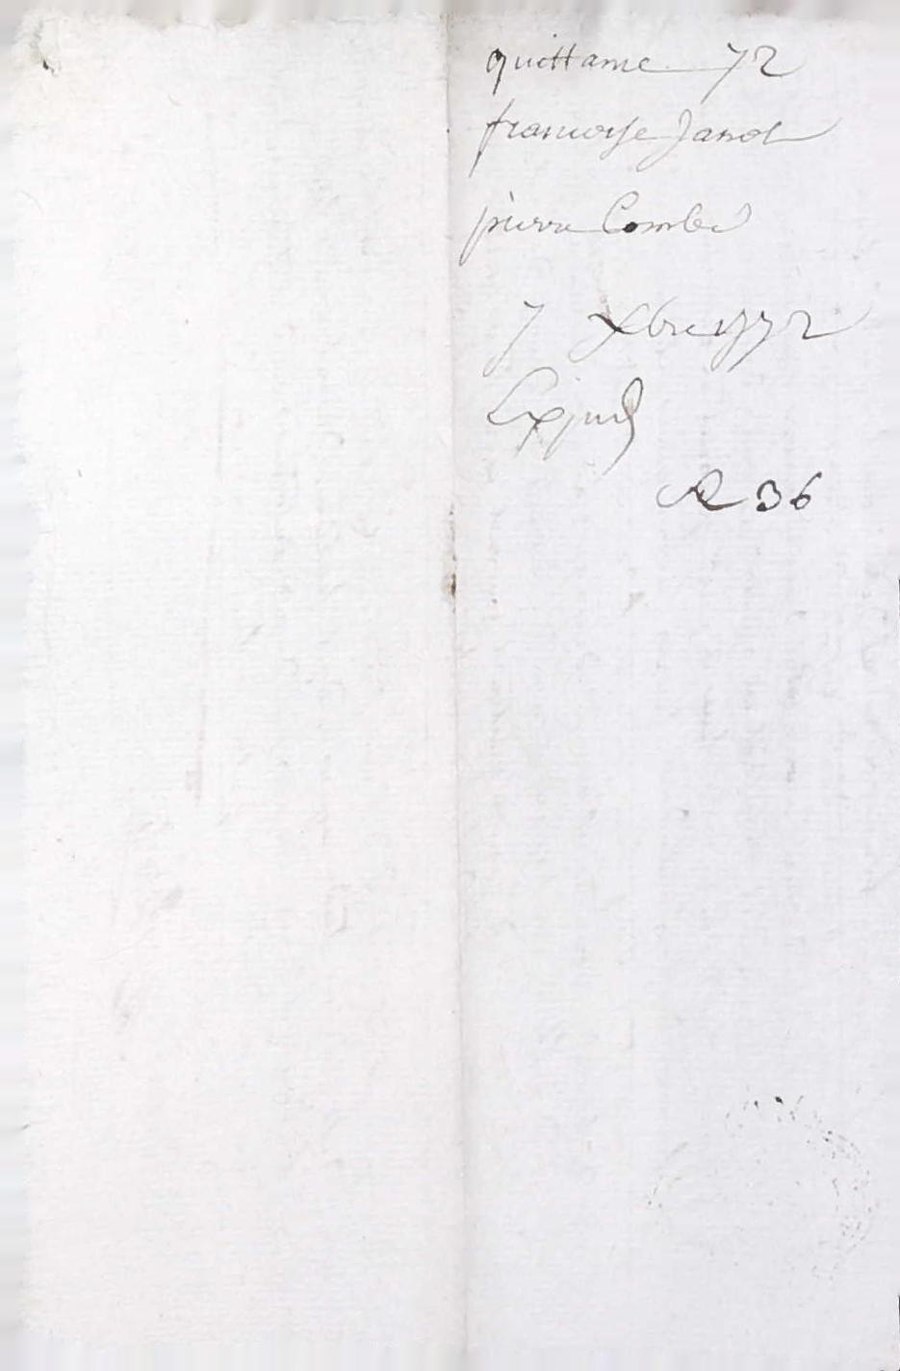 quittance 72
francoise Janot
pierre Combe
7 Xbre 1772
Expéd
R 36